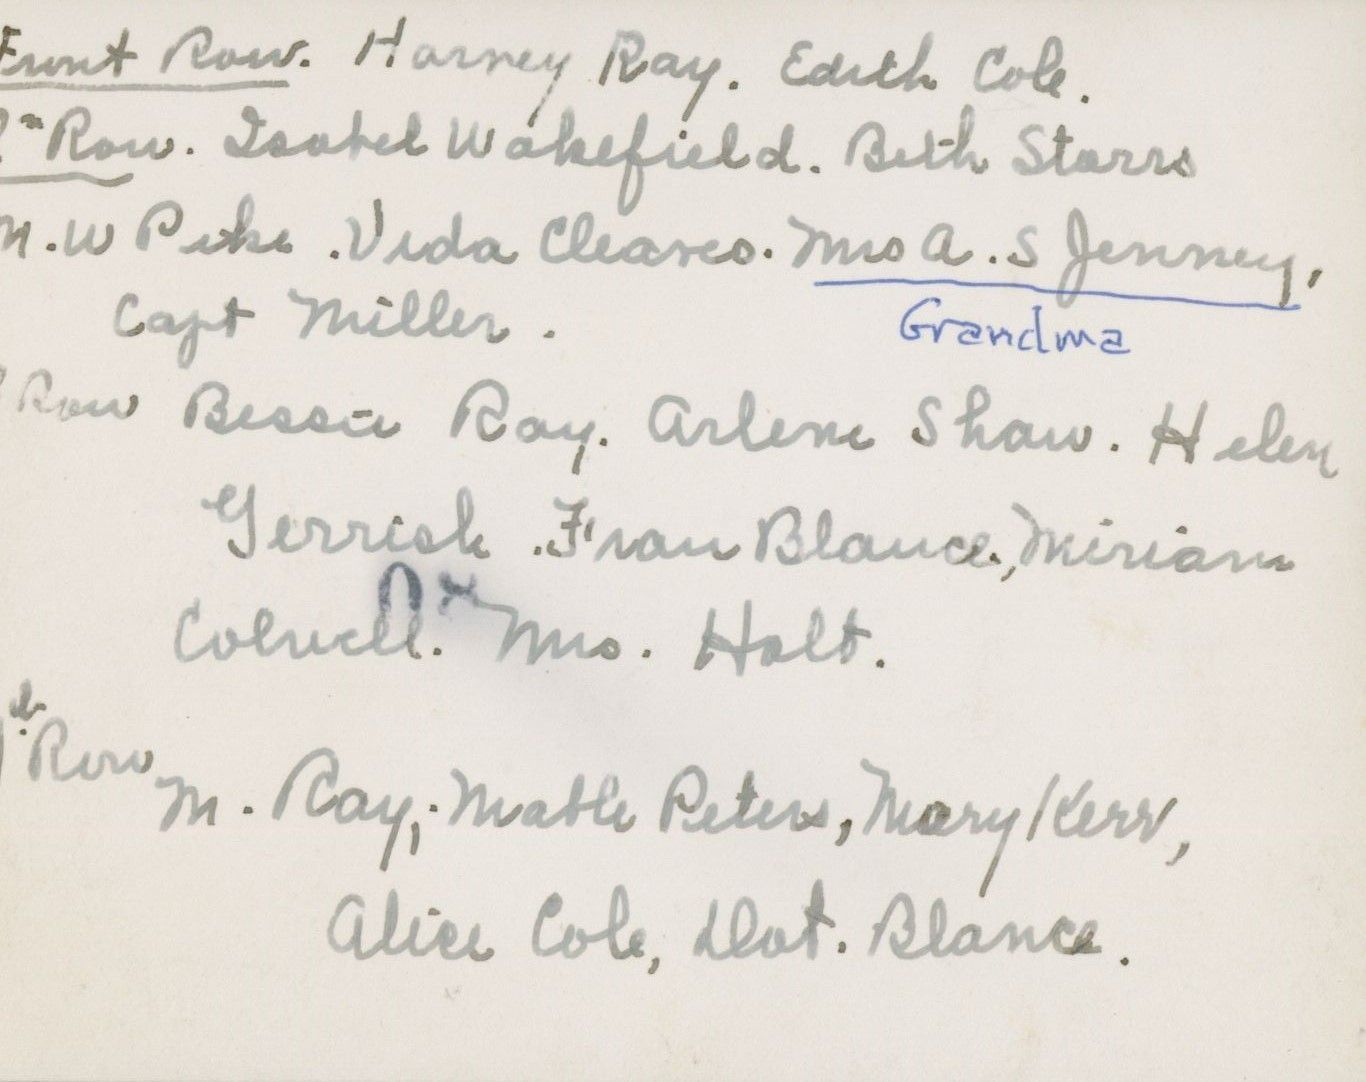 Front Row. Harvey Ray. Edith Cole.
Row. Isabel Wakefield. Beth Starrs
M.W Pike. Vida Cleaves. Mrs A. S Jenney,
Grandma
Capt Miller.
Row Bessie Ray. Arlene Shaw. Helen
Gerrish. Fran Blance, Miriam
Colwell. Mrs. Holt.
Row
M. Ray, Mable Peters, Mary Kerr,
Alice Cole, Dot. Blance.